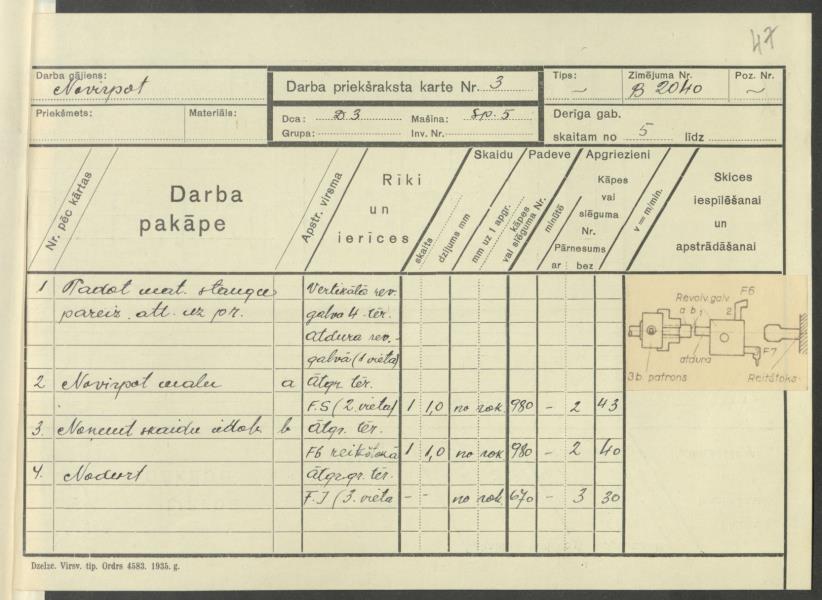 47
Darba gājiens:
Novirpot
Darba priekšraksta karte Nr. 3
Tips:
~
Zīmējuma Nr.
B 2040
Poz. Nr.
~
Priekšmets:
Materiāls:
Dca: D3
Mašina: Sp. 5
Grupa:
Inv. Nr.
Derīga gab.
skaitam no 5 līdz
Nr. pēc kārtas
Darba
pakāpe
Apstr. virsma
Rīki
un
ierīces
Skaidu
skaits
dziļums mm
Padeve
mm uz 1 apgr.
kāpes
vai slēguma Nr.
Apgriezieni
minūtē
Kāpes
vai
slēguma
Nr.
Pārnesums
ar bez
v = m/min.
Skices
iespīlēšanai
un
apstrādāšanai
1 Padot mat. stangu Vertikālā rev.
pareiz. att. uz pr. galva 4 tēr.
Atdura rev.-
galvā (1 vieta)
2 Novirpot malu a Ātgr. tēr.
F.5 (2. vieta) 1 1,0 no rok. 980 – 2 43
3. Noņemt skaidu b Ātgr. tēr.
F6 1 1,0 no rok 980 – 2 40
4. Nodurt Ātgr. tēr.
(3. vieta – – no rok. 670 – 3 30
Revolv. galv.
F6
a b 1
2
F7
atdura
3b. patrons
Reitštoks
Dzelzc. Virsv. tip. Ordrs 4583. 1935. g.